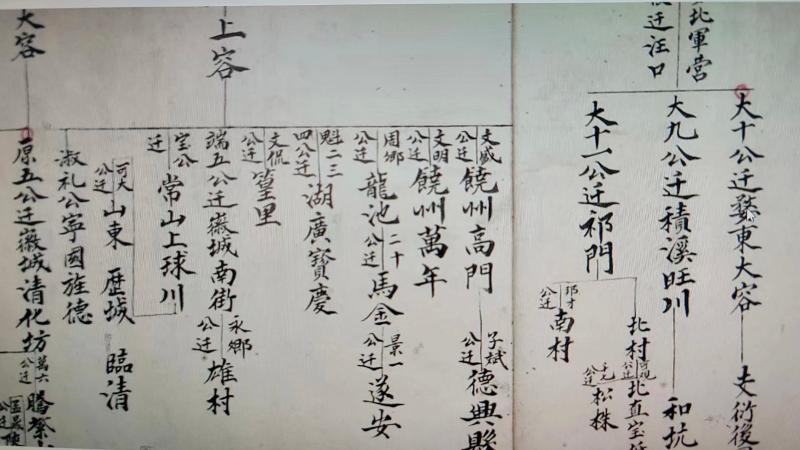 北軍营
迁汪口
大十公迁婺東大容
大九公迁積溪旺川
和坑
大十一公迁祁門
北村
公迁
北直宝
公迁
松株
公迁
南村
上容
文盛公迁
饒州高門
子斌公迁
德興縣
文明公迁
饒州萬年
周鄉公迁
龍池
二十公迁
馬金
景一公迁
遂安
魁二三四公迁
湖廣寳慶
文侃公迁
篁里
端五公迁徽城南街
永鄉公迁
雄村
宝公迁
常山上球川
可大公迁
山東
歷城
臨清
淑礼公寧國旌德
大容
原五公迁徽城清化坊
萬六公迁